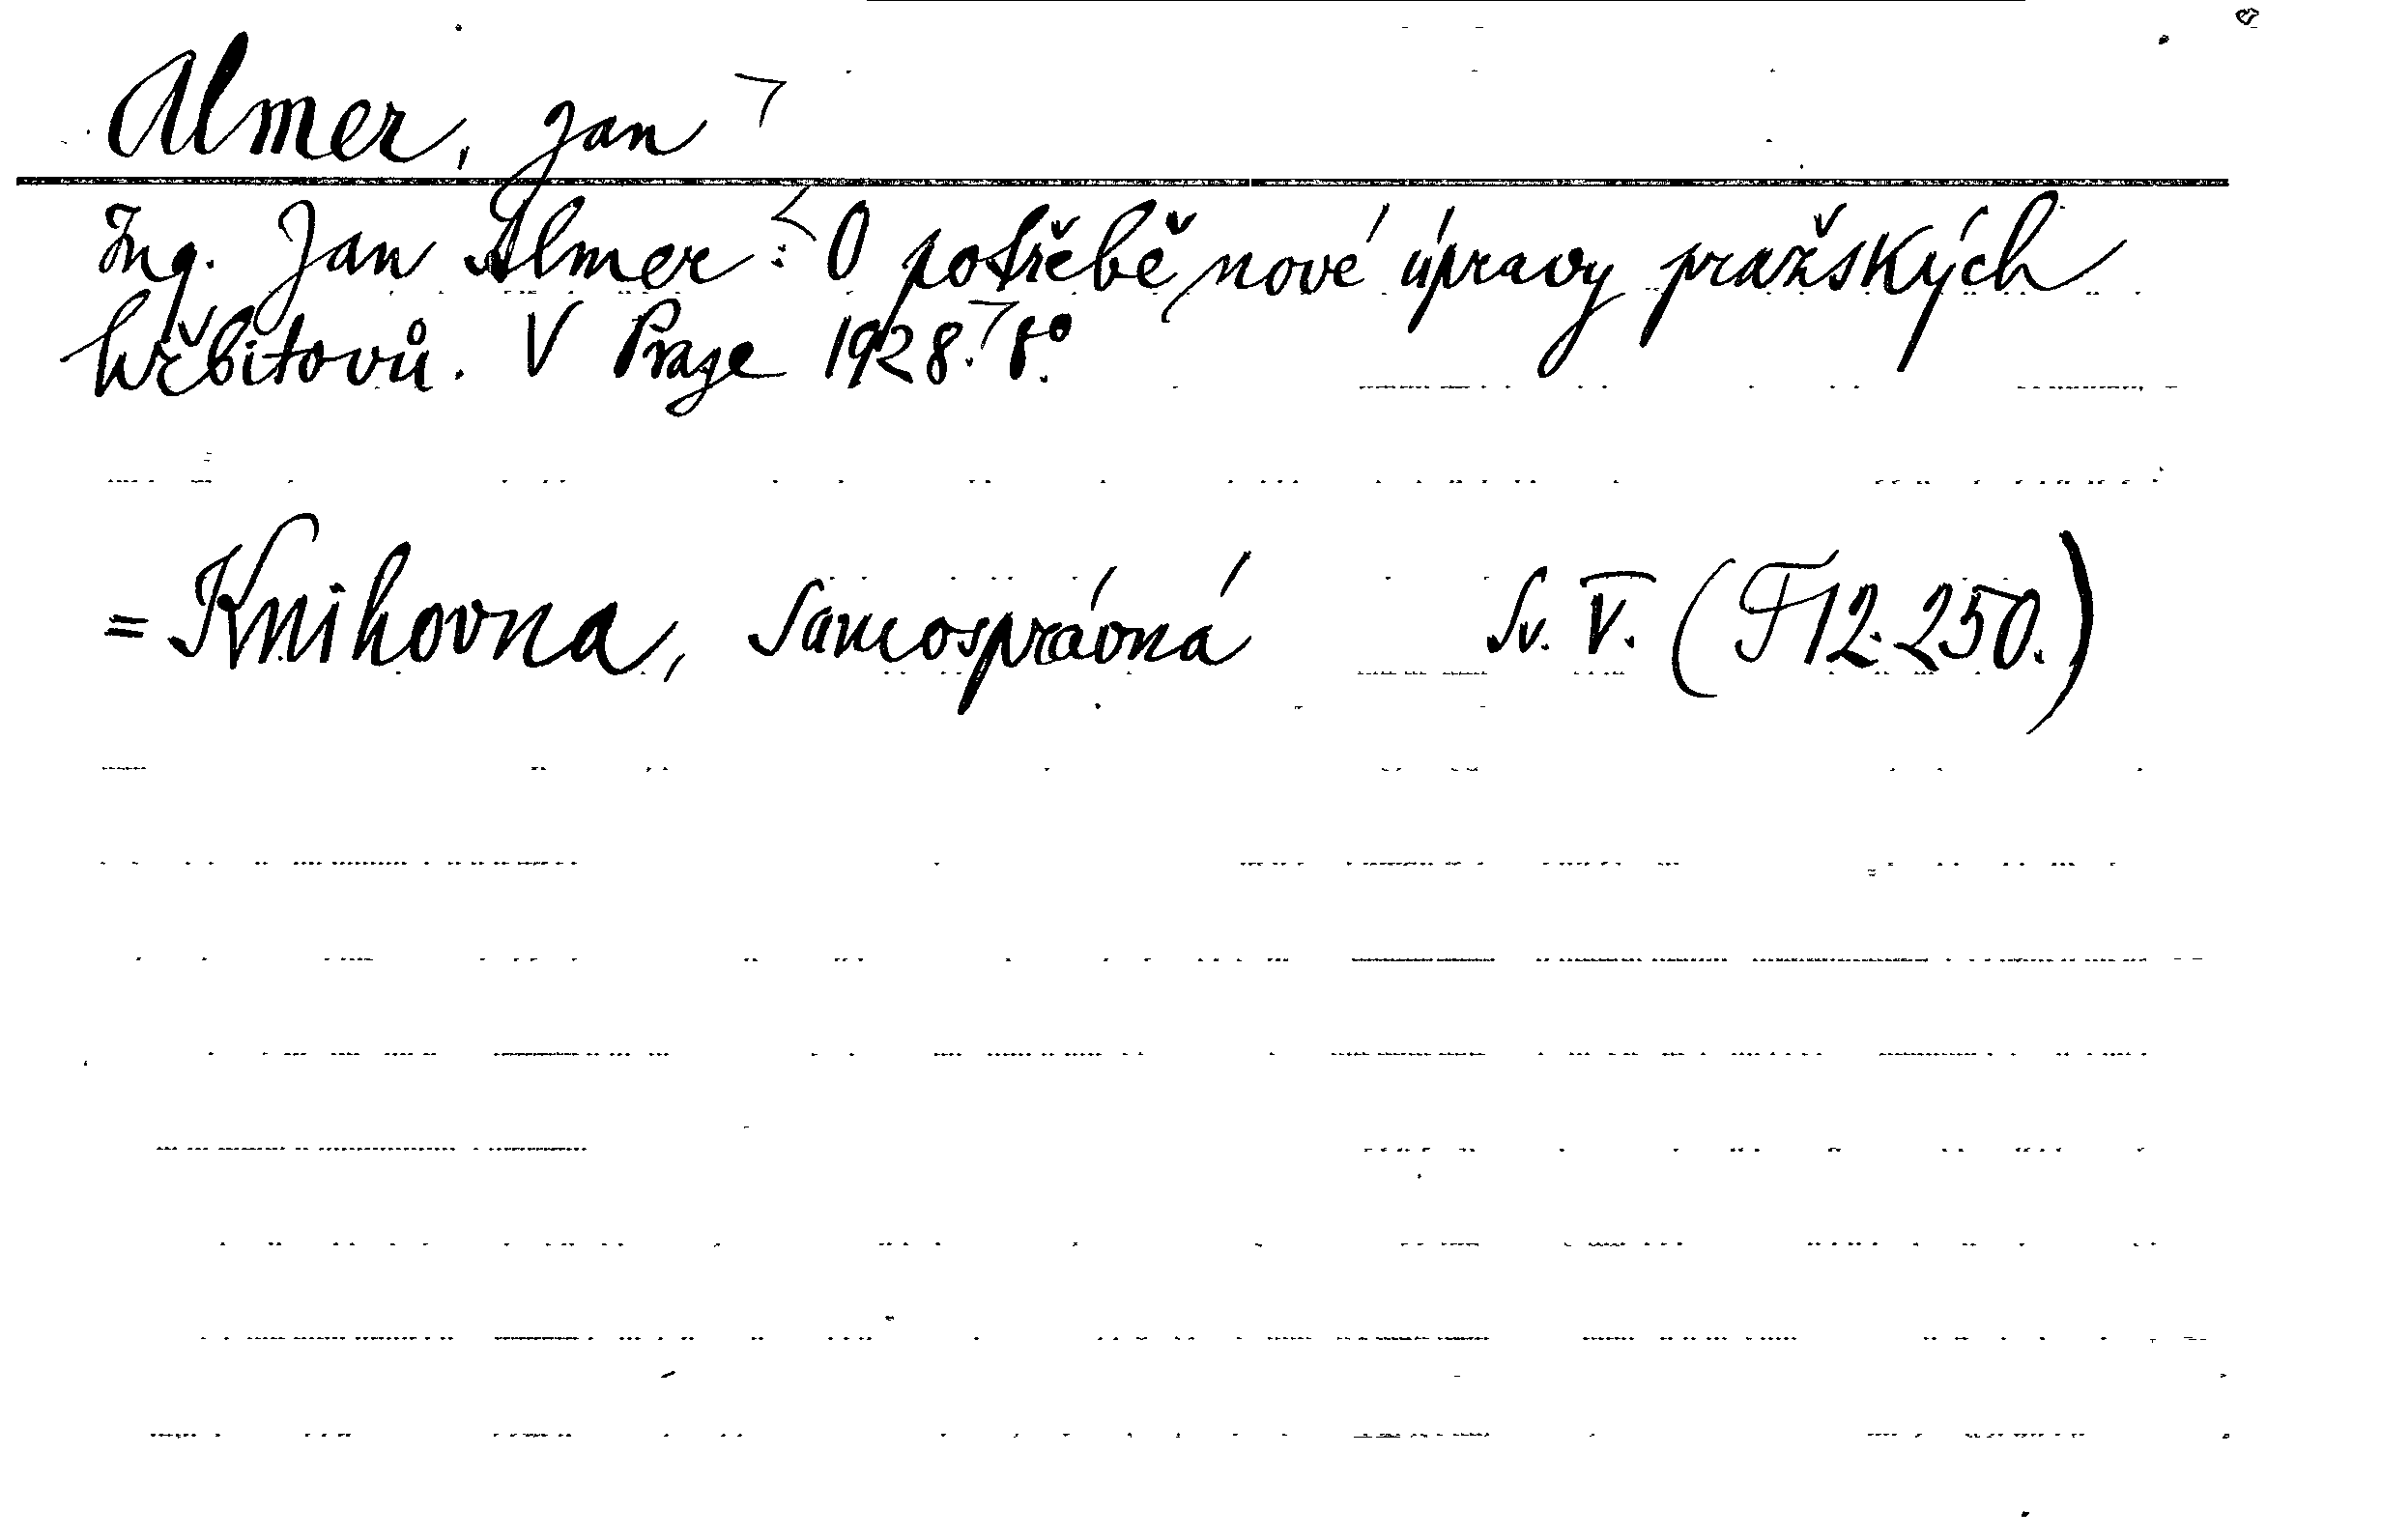 Almer, Jan
Ing. Jan Almer: O potřebě nové úpravy pražských
hřbitovů. V Praze 1928. 8°.
= Knihovna, Samosprávná Sv. V. (F 12.250.)